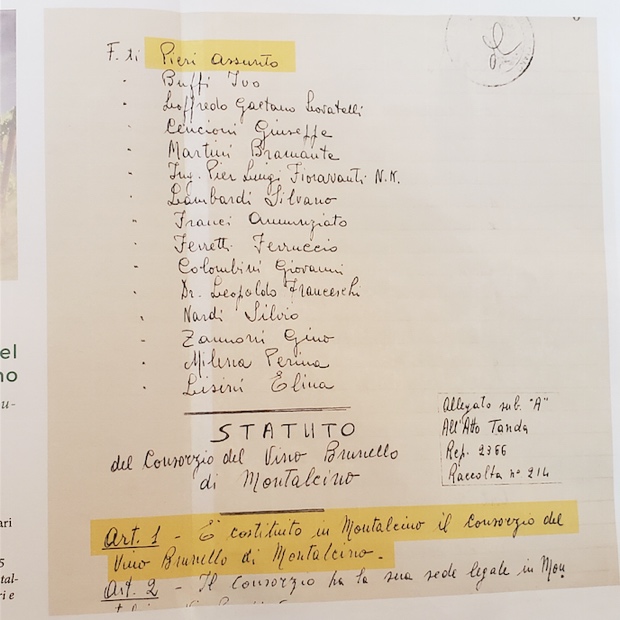 F.ti Pieri Assunto
" Buffi Ivo
" Loffredo Gaetano Lovatelli
" Cencioni Giuseppe
" Martini Bramante
" Ing. Pier Luigi Fioravanti N.K.
" Lambardi Silvano
" Franci Annunziato
" Ferretti Ferruccio
" Colombini Giovanni
" Dr. Leopoldo Franceschi
" Nardi Silvio
" Zannoni Gino
" Milena Perina
" Lisini Elina
STATUTO
del Consorzio del Vino Brunello
di Montalcino
Allegato sub. "A"
All'Atto Tanda
Rep. 2366
Raccolta n° 214
Art. 1 - E' costituito in Montalcino il Consorzio del
Vino Brunello di Montalcino.
Art. 2 - Il Consorzio ha la sua sede legale in Mon
el
no
u-
ari
5
tal-
ri e